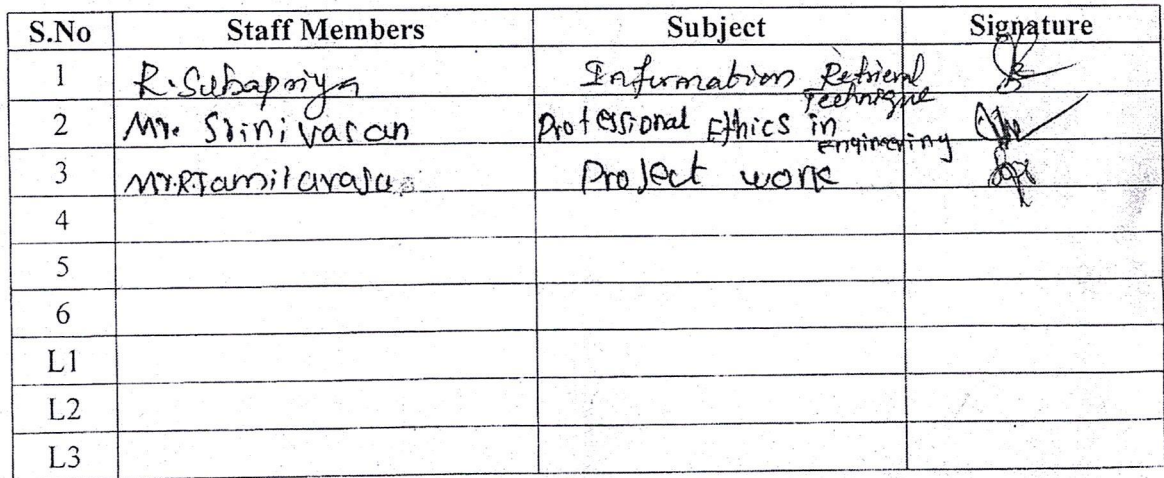 S.No Staff Members Subject Signature
1 R.Subapriya Information Retrieval Technique
2 Mr. Srinivasan Professional Ethics in engineering
3 Mr.R.Tamilavasa Project work
4
5
6
L1
L2
L3